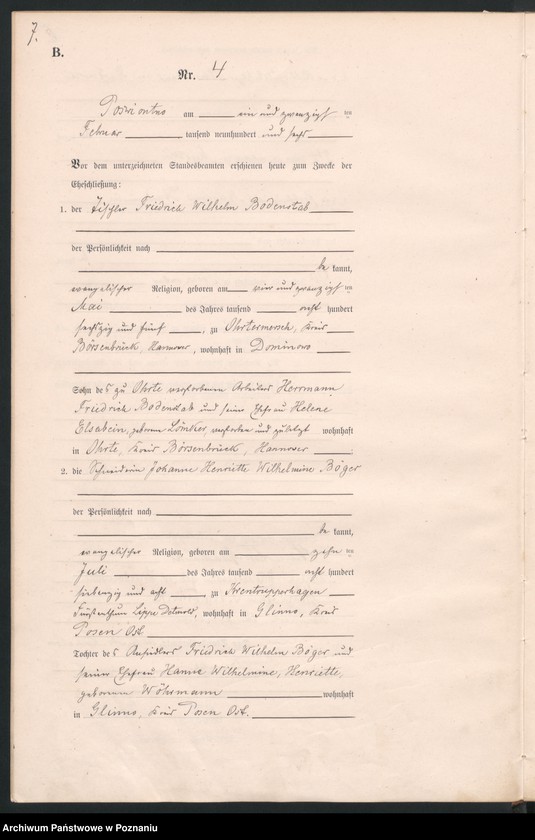 7.
B.
Nr. 4
am ein und zwanzigsten
Februar tausend neunhundert und sechs
Vor dem unterzeichneten Standesbeamten erschienen heute zum Zwecke der
Eheschließung:
1. der Tischler Friedrich Wilhelm Bodenstab
der Persönlichkeit nach
be kannt,
evangelischer Religion, geboren am vier und zwanzigsten
Mai des Jahres tausend acht hundert
sechszig und fünf, zu Ohrtermersch, Kreis
Börsenbrück, Hannover, wohnhaft in Dominowo
Sohn des zu Ohrte verstorbenen Arbeiters Herrmann
Friedrich Bodenstab und seiner Ehefrau Helene
Elsabein, geborenen verstorben und zuletzt wohnhaft
in Ohrte, Kreis Börsenbrück, Hannover
2. die Schneiderin Johanne Henriette Wilhelmine Böger
der Persönlichkeit nach
be kannt,
evangelischer Religion, geboren am zehnten
Juli des Jahres tausend acht hundert
siebenzig und acht, zu Krentrupperhagen
Fürstenthum Lippe Detmold, wohnhaft in Glinno, Kreis
Posen Ost
Tochter des Ansiedlers Friedrich Wilhelm Böger und
seiner Ehefrau Hanne Wilhelmine, Henriette,
geborenen Wöhrmann wohnhaft
in Glinno, Kreis Posen Ost.
Archiwum Państwowe w Poznaniu